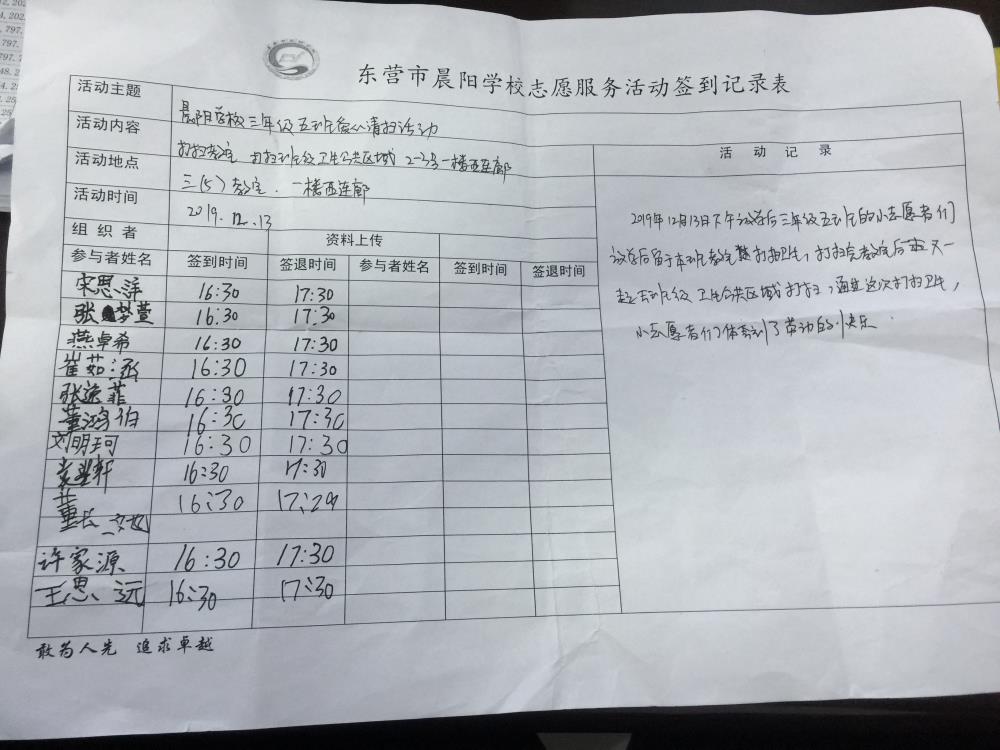 东营市晨阳学校志愿服务活动签到记录表
活动主题 晨阳学校三年级五班爱心清扫活动
活动内容 打扫教室 打扫班级卫生公共区域 2-3号一楼西连廊
活动地点 三(5)教室. 一楼西连廊
活动时间 2019.12.13
活动记录
2019年12月13日下午放学后三年级五班的小志愿者们
放学后留于本班教室打扫卫生,打扫完教室后大家一
起去班级卫生公共区域打扫,通过这次打扫卫生,
小志愿者们体会到了劳动的快乐.
组织者 资料上传
参与者姓名 签到时间 签退时间 参与者姓名 签到时间 签退时间
宋思萍 16:30 17:30
张梦萱 16:30 17:30
燕卓希 16:30 17:30
崔茹涵 16:30 17:30
张逸菲 16:30 17:30
董鸿伯 16:30 17:30
刘明珂 16:30 17:30
轩 16:30 17:30
董 16:30 17:29
许家源 16:30 17:30
王思远 16:30 17:30
敢为人先 追求卓越